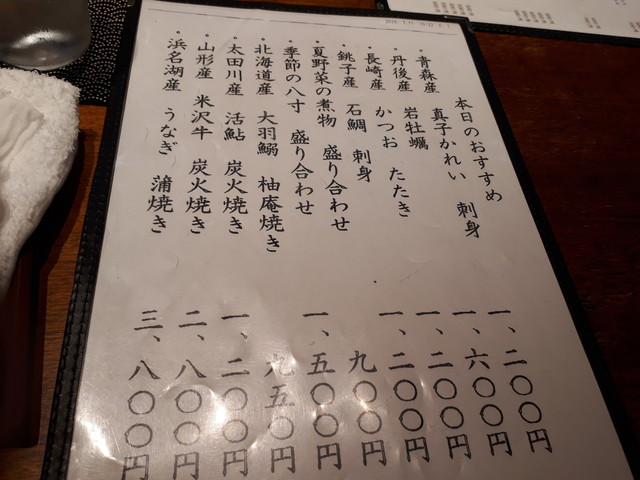 本日のおすすめ
・青森産 真子かれい 刺身 一、二〇〇円
・丹後産 岩牡蠣 一、六〇〇円
・長崎産 かつお たたき 一、二〇〇円
・銚子産 石鯛 刺身 一、二〇〇円
・夏野菜の煮物 盛り合わせ 九〇〇円
・季節の八寸 盛り合わせ 一、五〇〇円
・北海道産 大羽鰯 柚庵焼き 九五〇円
・太田川産 活鮎 炭火焼き 一、二〇〇円
・山形産 米沢牛 炭火焼き 二、八〇〇円
・浜名湖産 うなぎ 蒲焼き 三、八〇〇円